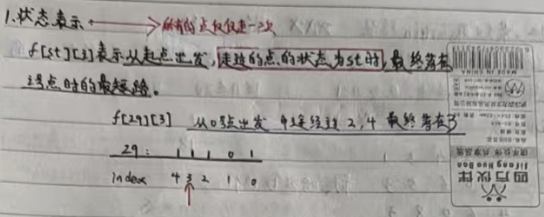 1.状态表示 → 所有的点仅仅走一次
f[st][3]表示从起点出发,走过的点的状态为st时,最终落在
3号点时的最短路。
f[29][3] 从0号点出发 中途经过2,4 最终落在3
29: 1 1 1 0 1
index 4 3 2 1 0
MADE IN CHINA
四万伙伴